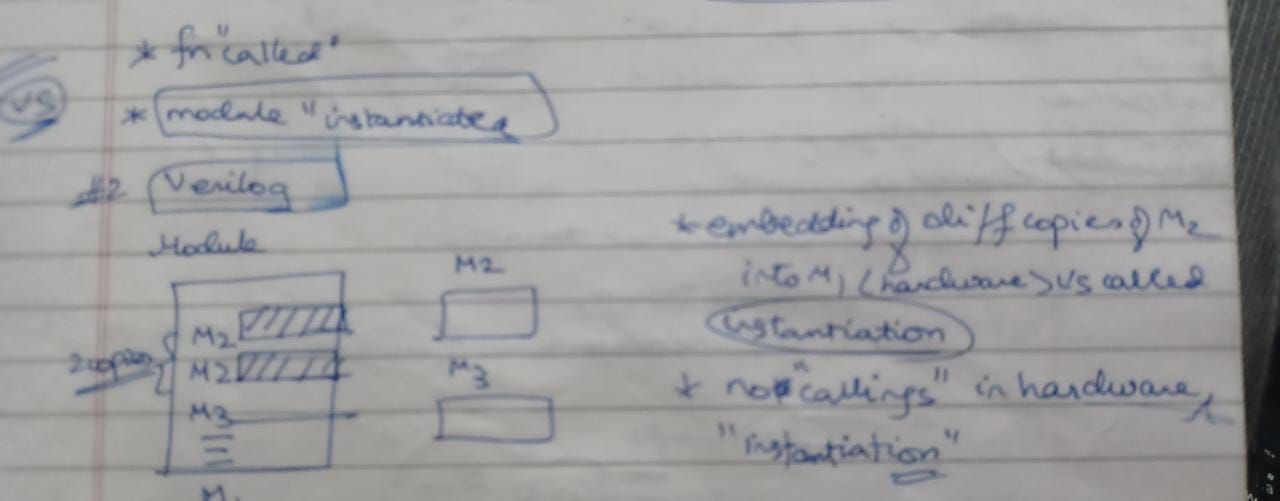 * fn "called"
VS
* module "instantiated
#2 Verilog
Module
M2
M2
2 copies
M2
M3
M2
M3
* embedding of diff copies of M2
into M1 (hardware) vs called
instantiation
* no "callings" in hardware,
"instantiation"